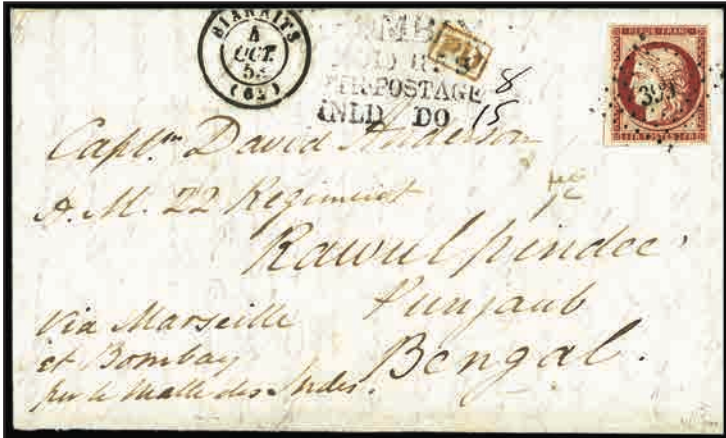 BIARRITS
4
OCT.
53
(62)
BOMBAY
POSTAGE 8
INLD DO 15
PD
REPUB. FRANC.
Captn David Anderson
H. M. 22 Regiment
Rawulpindee,
Punjaub
Bengal.
via Marseille
et Bombay
par la Malle des Indes.